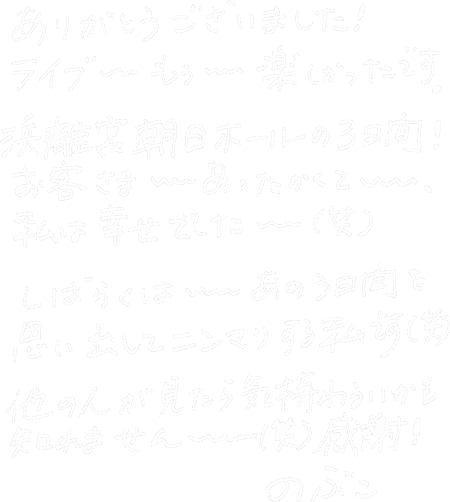 ありがとうございました!
ライブ〜〜もぅ〜〜楽しかったです。
浜離宮朝日ホールの3日間!
お客さま〜〜あったかくて〜〜、
私は幸せでした〜〜(笑)
しばらくは〜〜あの3日間を
思い出してニンマリする私です(笑)
他の人が見たら気持わるいかも
知れません〜〜(笑)感謝!
のぶこ